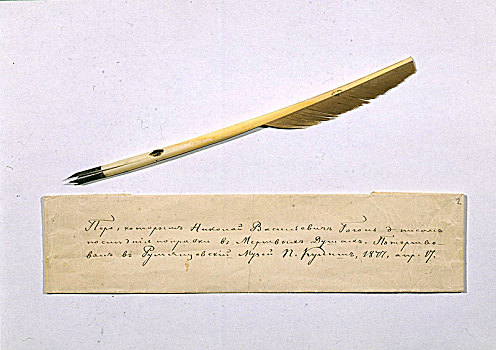 2
Перо, которымъ Николай Васильевичъ Гоголь писалъ
послѣднія поправки въ Мертвыхъ Душахъ. Пожертво-
валъ въ Румянцовскій Музей П. Кулишъ, 18 апр. 17.